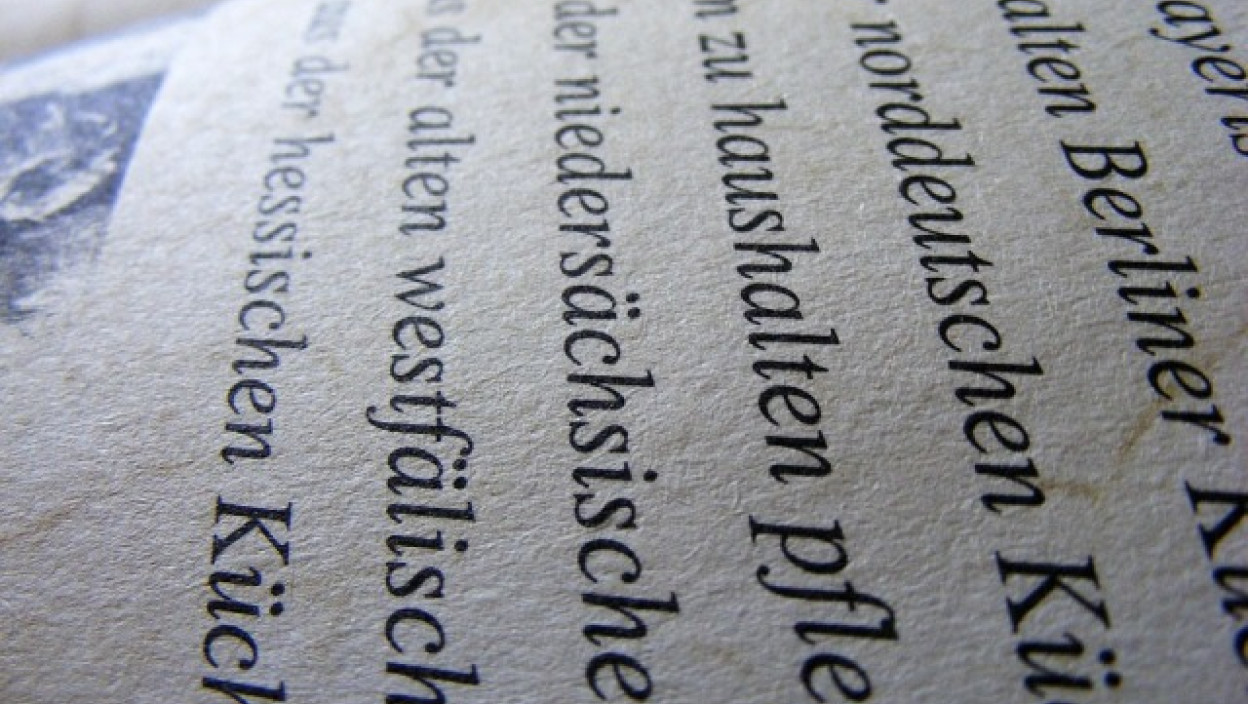 ayer is
alten Berliner Küc
r norddeutschen Kü
n zu haushalten pfle
der niedersächsische
s der alten westfälisch
aus der hessischen Küch